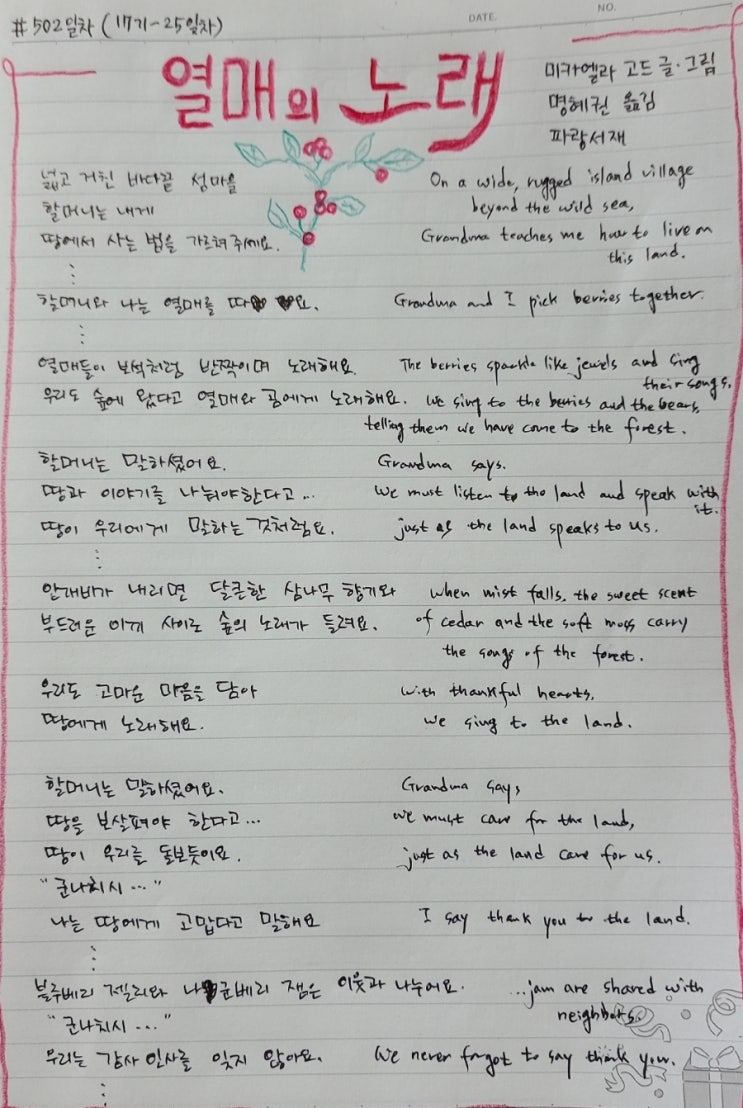 #502일차 (17기-25일차)
DATE.
NO.
열매의 노래
미카엘라 고드 글·그림
명혜권 옮김
파랑서재
넓고 거친 바다끝 섬마을
On a wide, rugged island village
할머니는 내게
beyond the wild sea,
땅에서 사는 법을 가르쳐 주세요.
Grandma teaches me how to live on
this land.
⋮
할머니와 나는 열매를 따요.
Grandma and I pick berries together.
⋮
열매들이 보석처럼 반짝이며 노래해요.
The berries sparkle like jewels and sing
their songs.
우리도 숲에 왔다고 열매와 곰에게 노래해요.
We sing to the berries and the bears,
telling them we have come to the forest.
할머니는 말하셨어요.
Grandma says.
땅과 이야기를 나눠야한다고...
We must listen to the land and speak with
it.
땅이 우리에게 말하는 것처럼요.
just as the land speaks to us.
⋮
안개비가 내리면 달큰한 삼나무 향기와
when mist falls, the sweet scent
부드러운 이끼 사이로 숲의 노래가 들려요.
of cedar and the soft moss carry
the songs of the forest.
우리도 고마운 마음을 담아
with thankful hearts,
땅에게 노래해요.
we sing to the land.
할머니는 말하셨어요.
Grandma says
땅을 보살펴야 한다고...
we must care for the land,
땅이 우리를 돌보듯이요.
just as the land care for us.
"군나치시..."
나는 땅에게 고맙다고 말해요
I say thank you to the land.
⋮
블루베리 젤리와 나군베리 잼은 이웃과 나누어요.
...jam are shared with
neighbors.
"군나치시..."
우리는 감사 인사를 잊지 않아요.
We never forgot to say thank you.
⋮